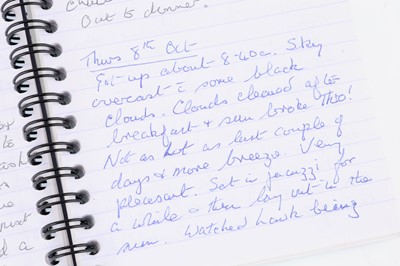 Out to dinner.
Thurs 8th Oct
Got up about 8-40a. Sky
overcast c some black
clouds. Clouds cleared after
breakfast & sun broke thro!
Not as hot as last couple of
days & more breeze. Very
pleasant. Sat in jacuzzi for
a while & then lay out in the
sun. Watched hawk being